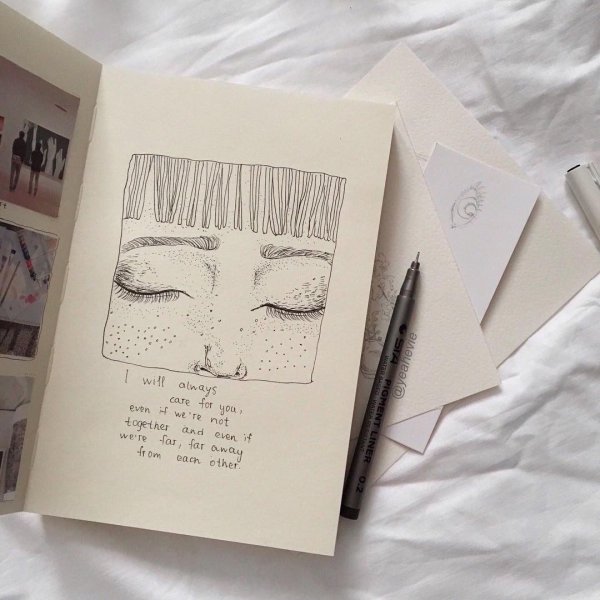 I will always
care for you,
even if we're not
together and even if
we're far, far away
from each other.
STA PIGMENT LINER 0.2
@yeanevie